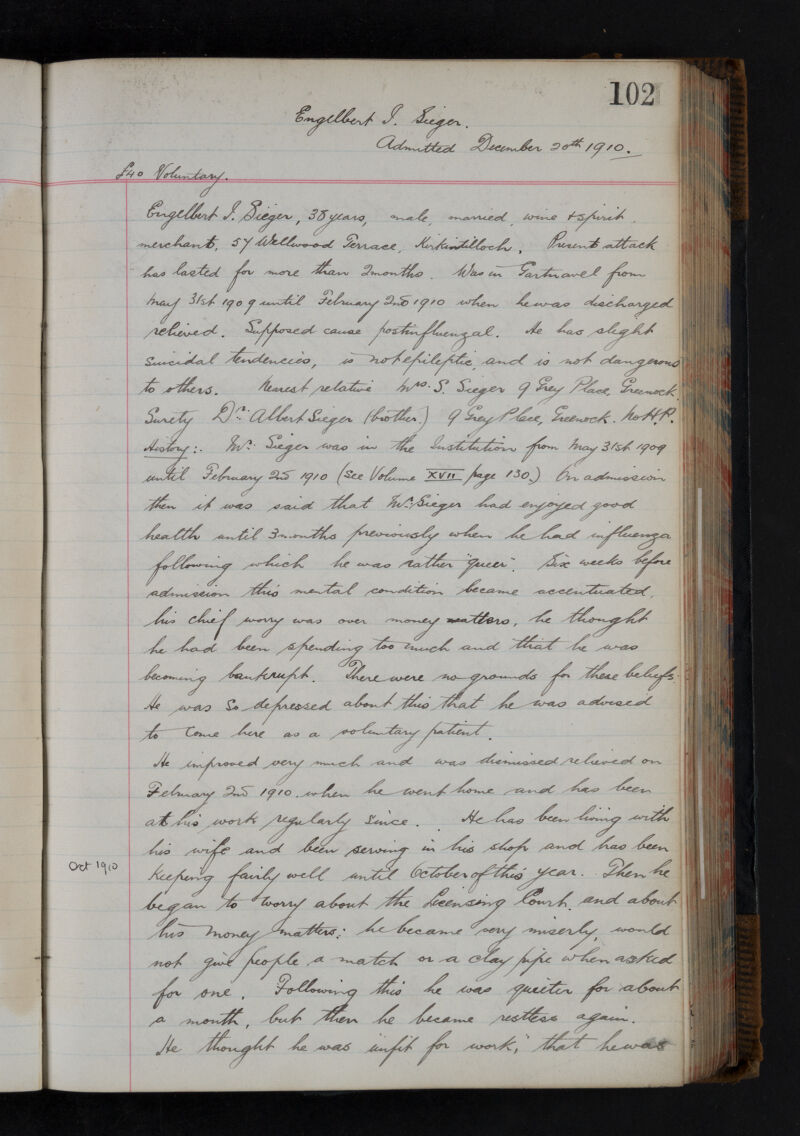 102
Engelbert J. Sieger.
Admitted December 20th 1910.
£40 Voluntary.
Engelbert J. Sieger, 38 years, male, married, wine & spirit
merchant, 57 Wellwood Terrace, Kirkintilloch. Present attack
has lasted for more than 2 months. Was in Gartnavel from
May 31st 1909 until February 2nd 1910 when he was discharged
relieved. Supposed cause postinfluenzal. He has slight
suicidal tendencies, is not epileptic, and is not dangerous
to others. Nearest relative Mrs. S. Sieger 9 Grey Place, Greenock.
Surety Dr. Albert Sieger (brother.) 9 Grey Place, Greenock. No H.P.
History:- Mr. Sieger was in the Institution from May 31st 1909
until February 2nd 1910 (see Volume XVII page 130.) On admission
then it was said that Mr. Sieger had enjoyed good
health until 3 months previously when he had influenza
following which he was rather "queer". Six weeks before
admission this mental condition became accentuated,
his chief worry was over money matters, he thought
he had been spending too much and that he was
becoming bankrupt. There were no grounds for these beliefs.
He was so depressed about this that he was advised
to come here as a voluntary patient.
He improved very much and was dismissed relieved on
February 2nd 1910. when he went home and has been
at his work regularly since. He has been living with
his wife and been serving in his shop and has been
Oct 1910 keeping fairly well until October of this year. Then he
began to worry about the Licensing Court, and about
his money matters; he became very miserly, would
not give people a match or a clay pipe when asked
for one. Following this he was quieter for about
a month, but then he became restless again.
He thought he was unfit for work, that he was